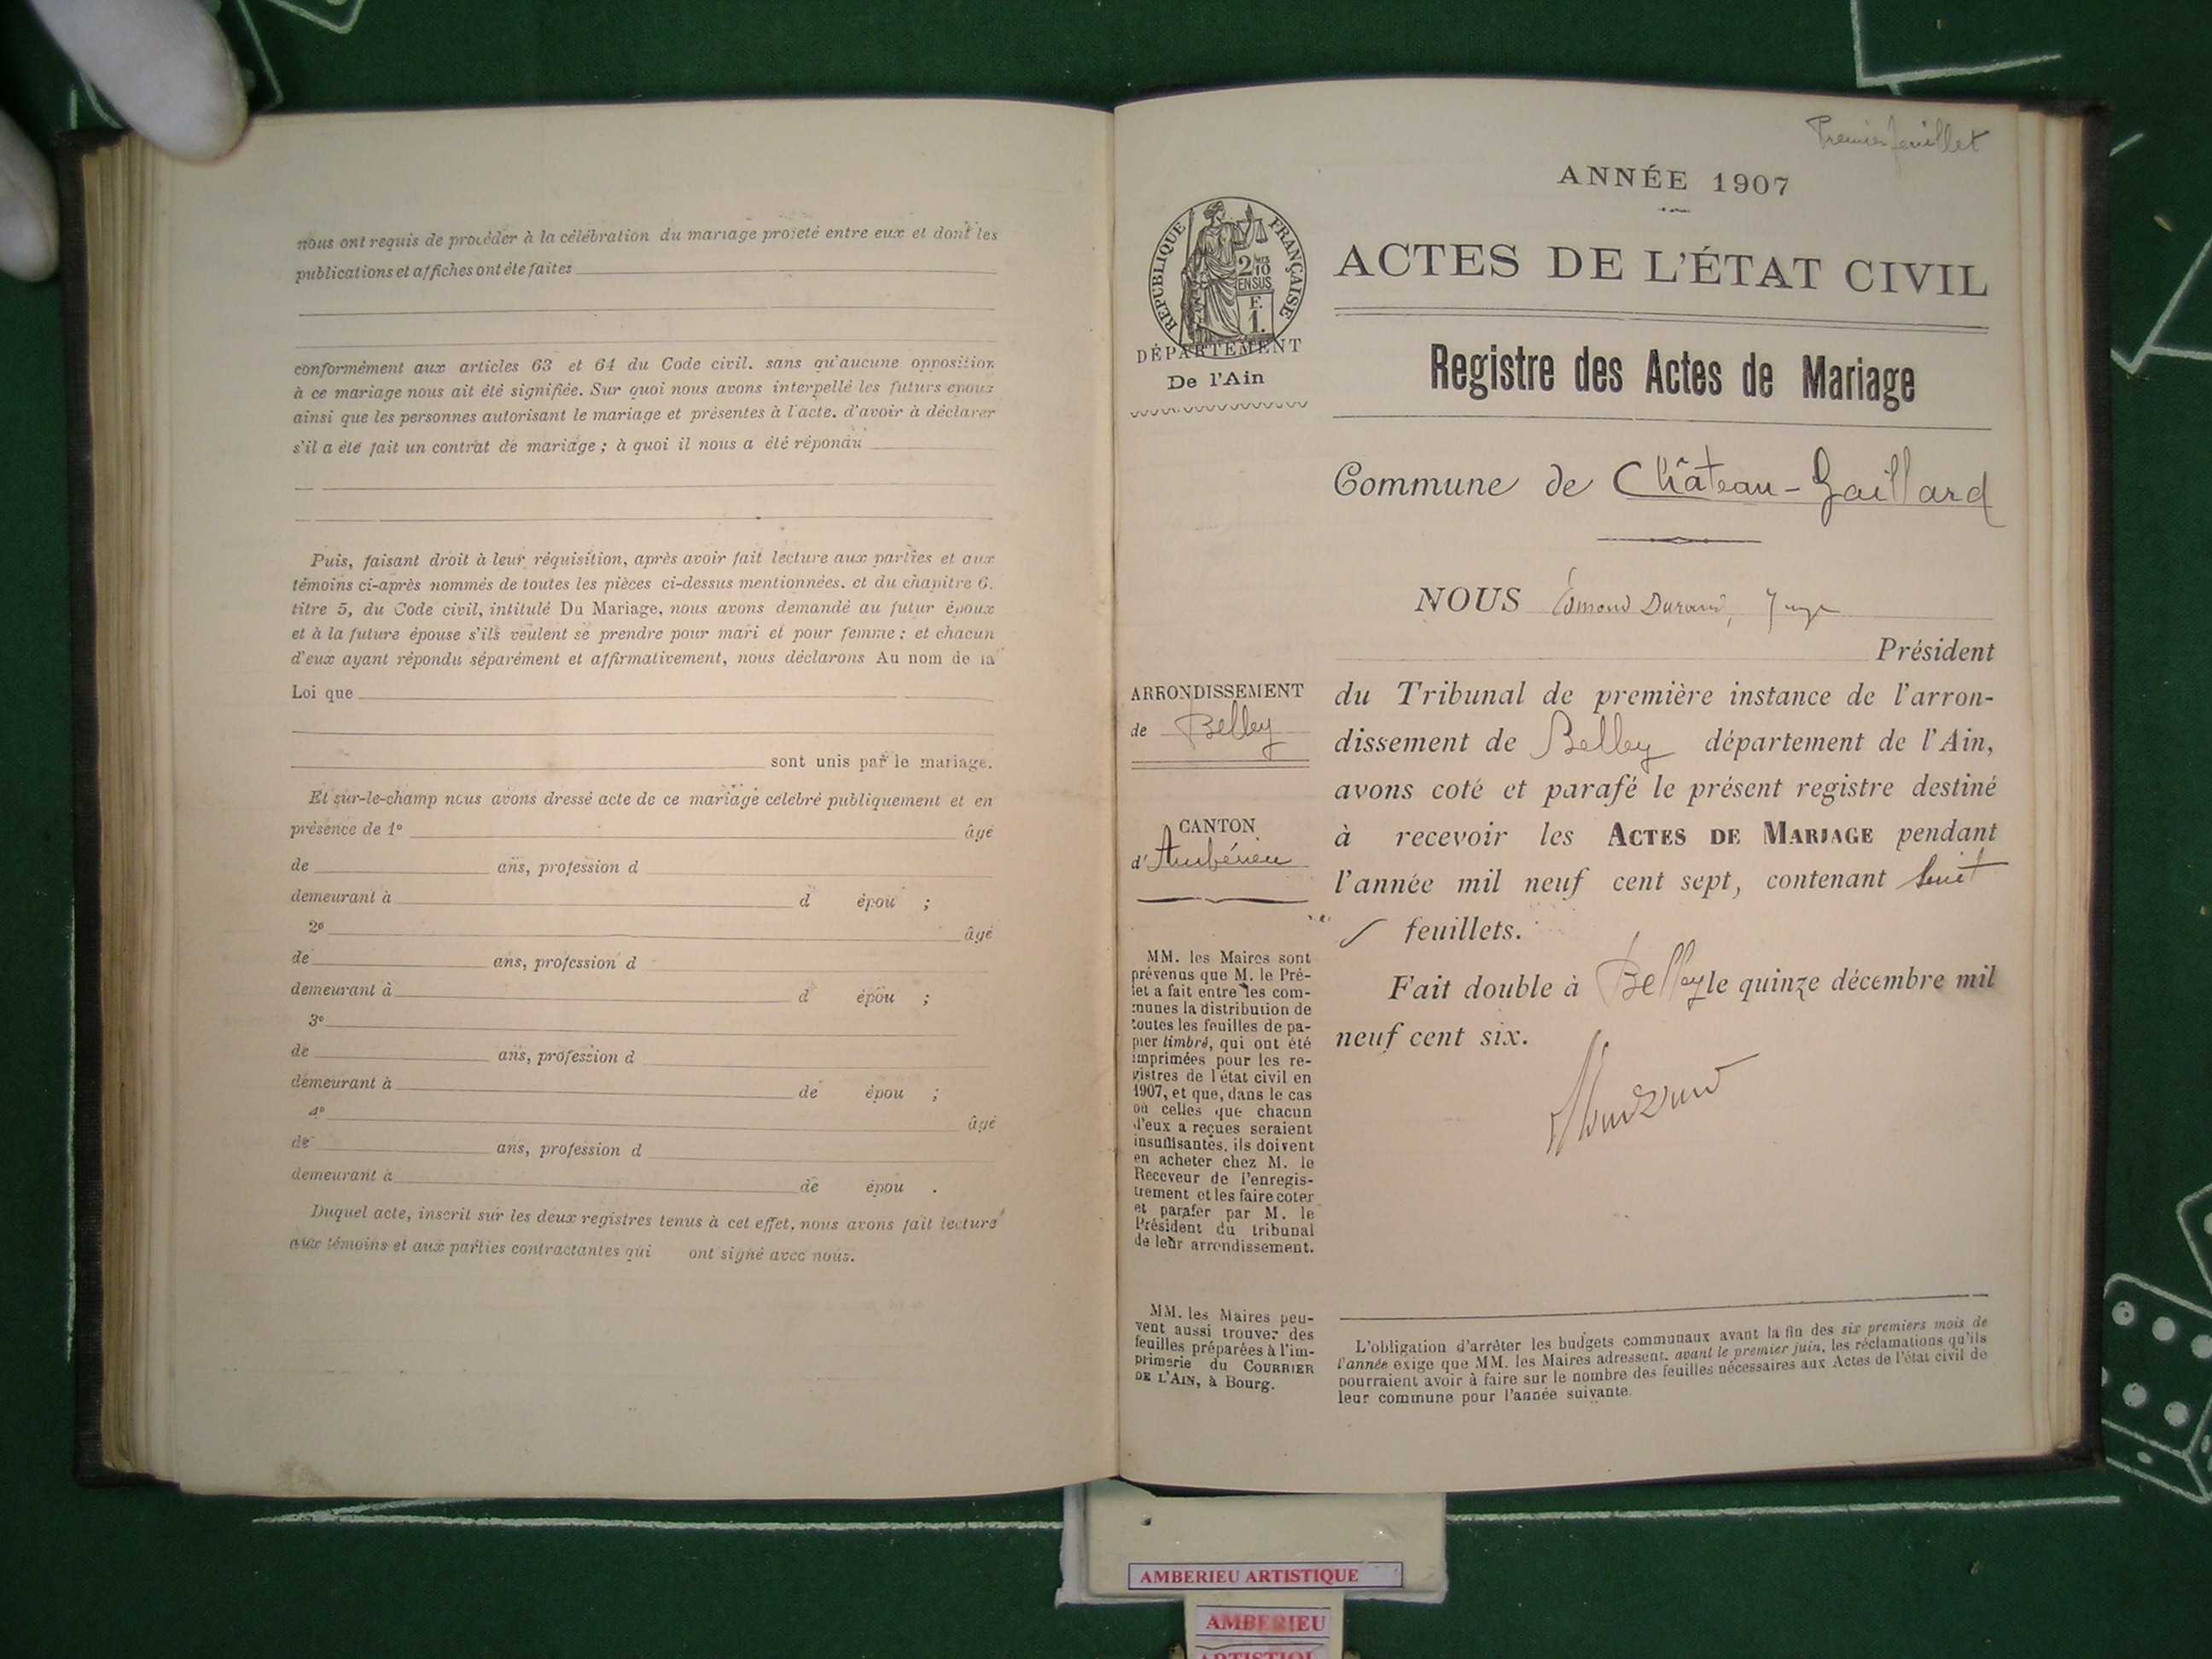 nous ont requis de procéder à la célébration du mariage projeté entre eux et dont les
publications et affiches ont été faites
conformément aux articles 63 et 64 du Code civil. sans qu'aucune opposition
à ce mariage nous ait été signifiée. Sur quoi nous avons interpellé les futurs époux
ainsi que les personnes autorisant le mariage et présentes à l'acte. d'avoir à déclarer
s'il a été fait un contrat de mariage ; à quoi il nous a été répondu
Puis, faisant droit à leur réquisition, après avoir fait lecture aux parties et aux
témoins ci-après nommés de toutes les pièces ci-dessus mentionnées. et du chapitre 6.
titre 5, du Code civil, intitulé Du Mariage, nous avons demandé au futur époux
et à la future épouse s'ils veulent se prendre pour mari et pour femme ; et chacun
d'eux ayant répondu séparément et affirmativement, nous déclarons Au nom de la
Loi que
sont unis par le mariage.
Et sur-le-champ nous avons dressé acte de ce mariage célébré publiquement et en
présence de 1° âgé
de ans, profession d
demeurant à d épou ;
2° âgé
de ans, profession d
demeurant à d épou ;
3°
de ans, profession d
demeurant à de épou ;
4° âgé
de ans, profession d
demeurant à de épou .
Duquel acte, inscrit sur les deux registres tenus à cet effet, nous avons fait lecture
aux témoins et aux parties contractantes qui ont signé avec nous.
Premier feuillet
ANNÉE 1907
RÉPUBLIQUE FRANÇAISE
2/10 EN SUS
F. 1.
DÉPARTEMENT
De l'Ain
ACTES DE L'ÉTAT CIVIL
Registre des Actes de Mariage
Commune de Château-Gaillard
NOUS Edmond Durand, Juge
Président
ARRONDISSEMENT
de Belley
CANTON
d'Ambérieu
du Tribunal de première instance de l'arron-
dissement de Belley département de l'Ain,
avons coté et parafé le présent registre destiné
à recevoir les ACTES DE MARIAGE pendant
l'année mil neuf cent sept, contenant huit
feuillets.
Fait double à Belley le quinze décembre mil
neuf cent six.
MM. les Maires sont
prévenus que M. le Pré-
fet a fait entre les com-
munes la distribution de
toutes les feuilles de pa-
pier timbré, qui ont été
imprimées pour les re-
gistres de l'état civil en
1907, et que, dans le cas
où celles que chacun
d'eux a reçues seraient
insuffisantes, ils doivent
en acheter chez M. le
Receveur de l'enregis-
trement et les faire coter
et parafer par M. le
Président du tribunal
de leur arrondissement.
MM. les Maires peu-
vent aussi trouver des
feuilles préparées à l'im-
primerie du COURRIER
DE L'AIN, à Bourg.
L'obligation d'arrêter les budgets communaux avant la fin des six premiers mois de
l'année exige que MM. les Maires adressent, avant le premier juin, les réclamations qu'ils
pourraient avoir à faire sur le nombre des feuilles nécessaires aux Actes de l'état civil de
leur commune pour l'année suivante.
AMBERIEU ARTISTIQUE
AMBERIEU